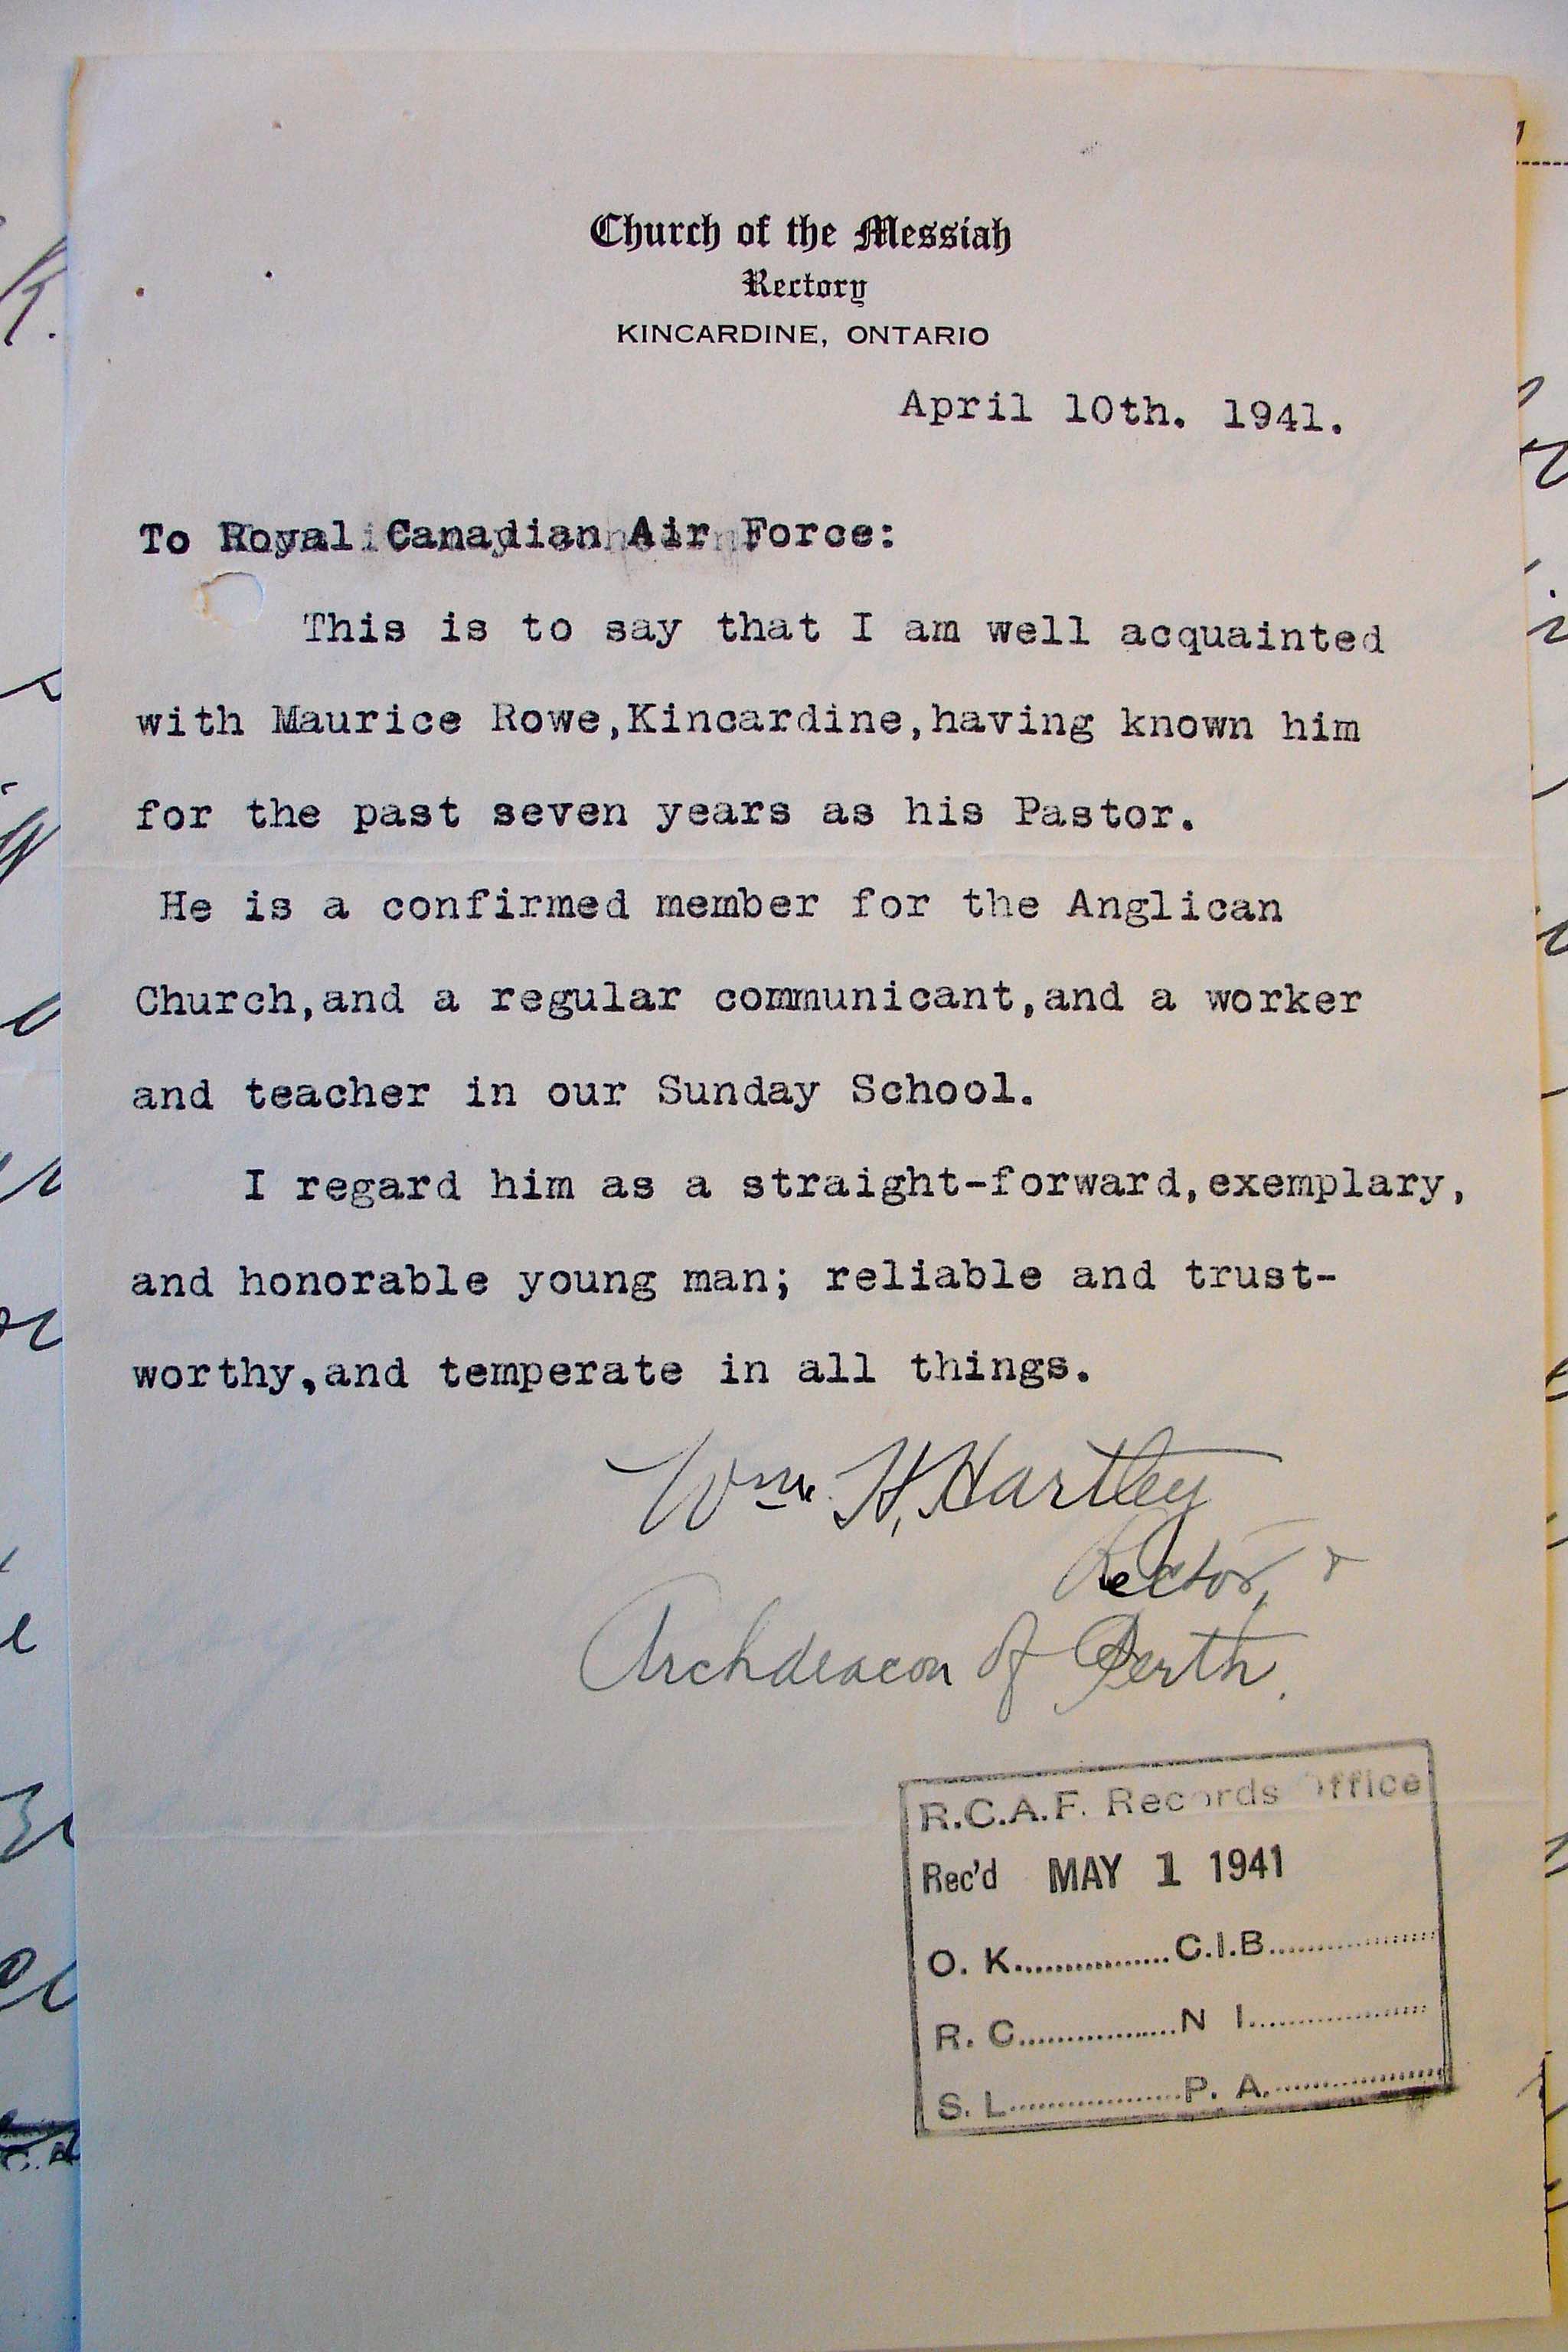 Church of the Messiah
Rectory
KINCARDINE, ONTARIO
April 10th. 1941.
To Royal Canadian Air Force:
This is to say that I am well acquainted
with Maurice Rowe,Kincardine,having known him
for the past seven years as his Pastor.
He is a confirmed member for the Anglican
Church,and a regular communicant,and a worker
and teacher in our Sunday School.
I regard him as a straight-forward,exemplary,
and honorable young man; reliable and trust-
worthy,and temperate in all things.
Wm. H. Hartley
Rector, &
Archdeacon of Perth.
R.C.A.F. Records Office
Rec'd MAY 1 1941
O. K................C.I.B................
R. C................N I................
S. L................P. A................